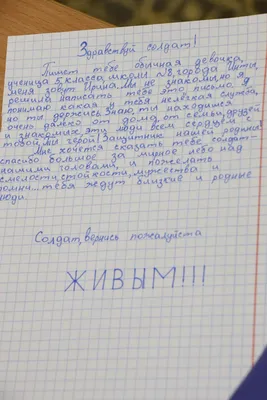 Здравствуй солдат!
Пишет тебе обычная девочка,
ученица 5 класса, школы №8, города Читы,
меня зовут Ирина. Мы не знакомы, но я
решила написать тебе это письмо. Я
понимаю какая у тебя нелегкая служба,
но ты держись. Знаю, ты находишся
очень далеко от дома, от семьи, друзей
и знакомых, эти люди всем сердцем с
тобой, ты герой! Защитник нашей родины!
Мне хочется сказать тебе солдат-
спасибо большое за мирное небо над
нашими головами, и пожелать
смелости, стойкости, мужества и
помни... тебя ждут близкие и родные
люди.
Солдат, вернись пожалуйста
ЖИВЫМ!!!